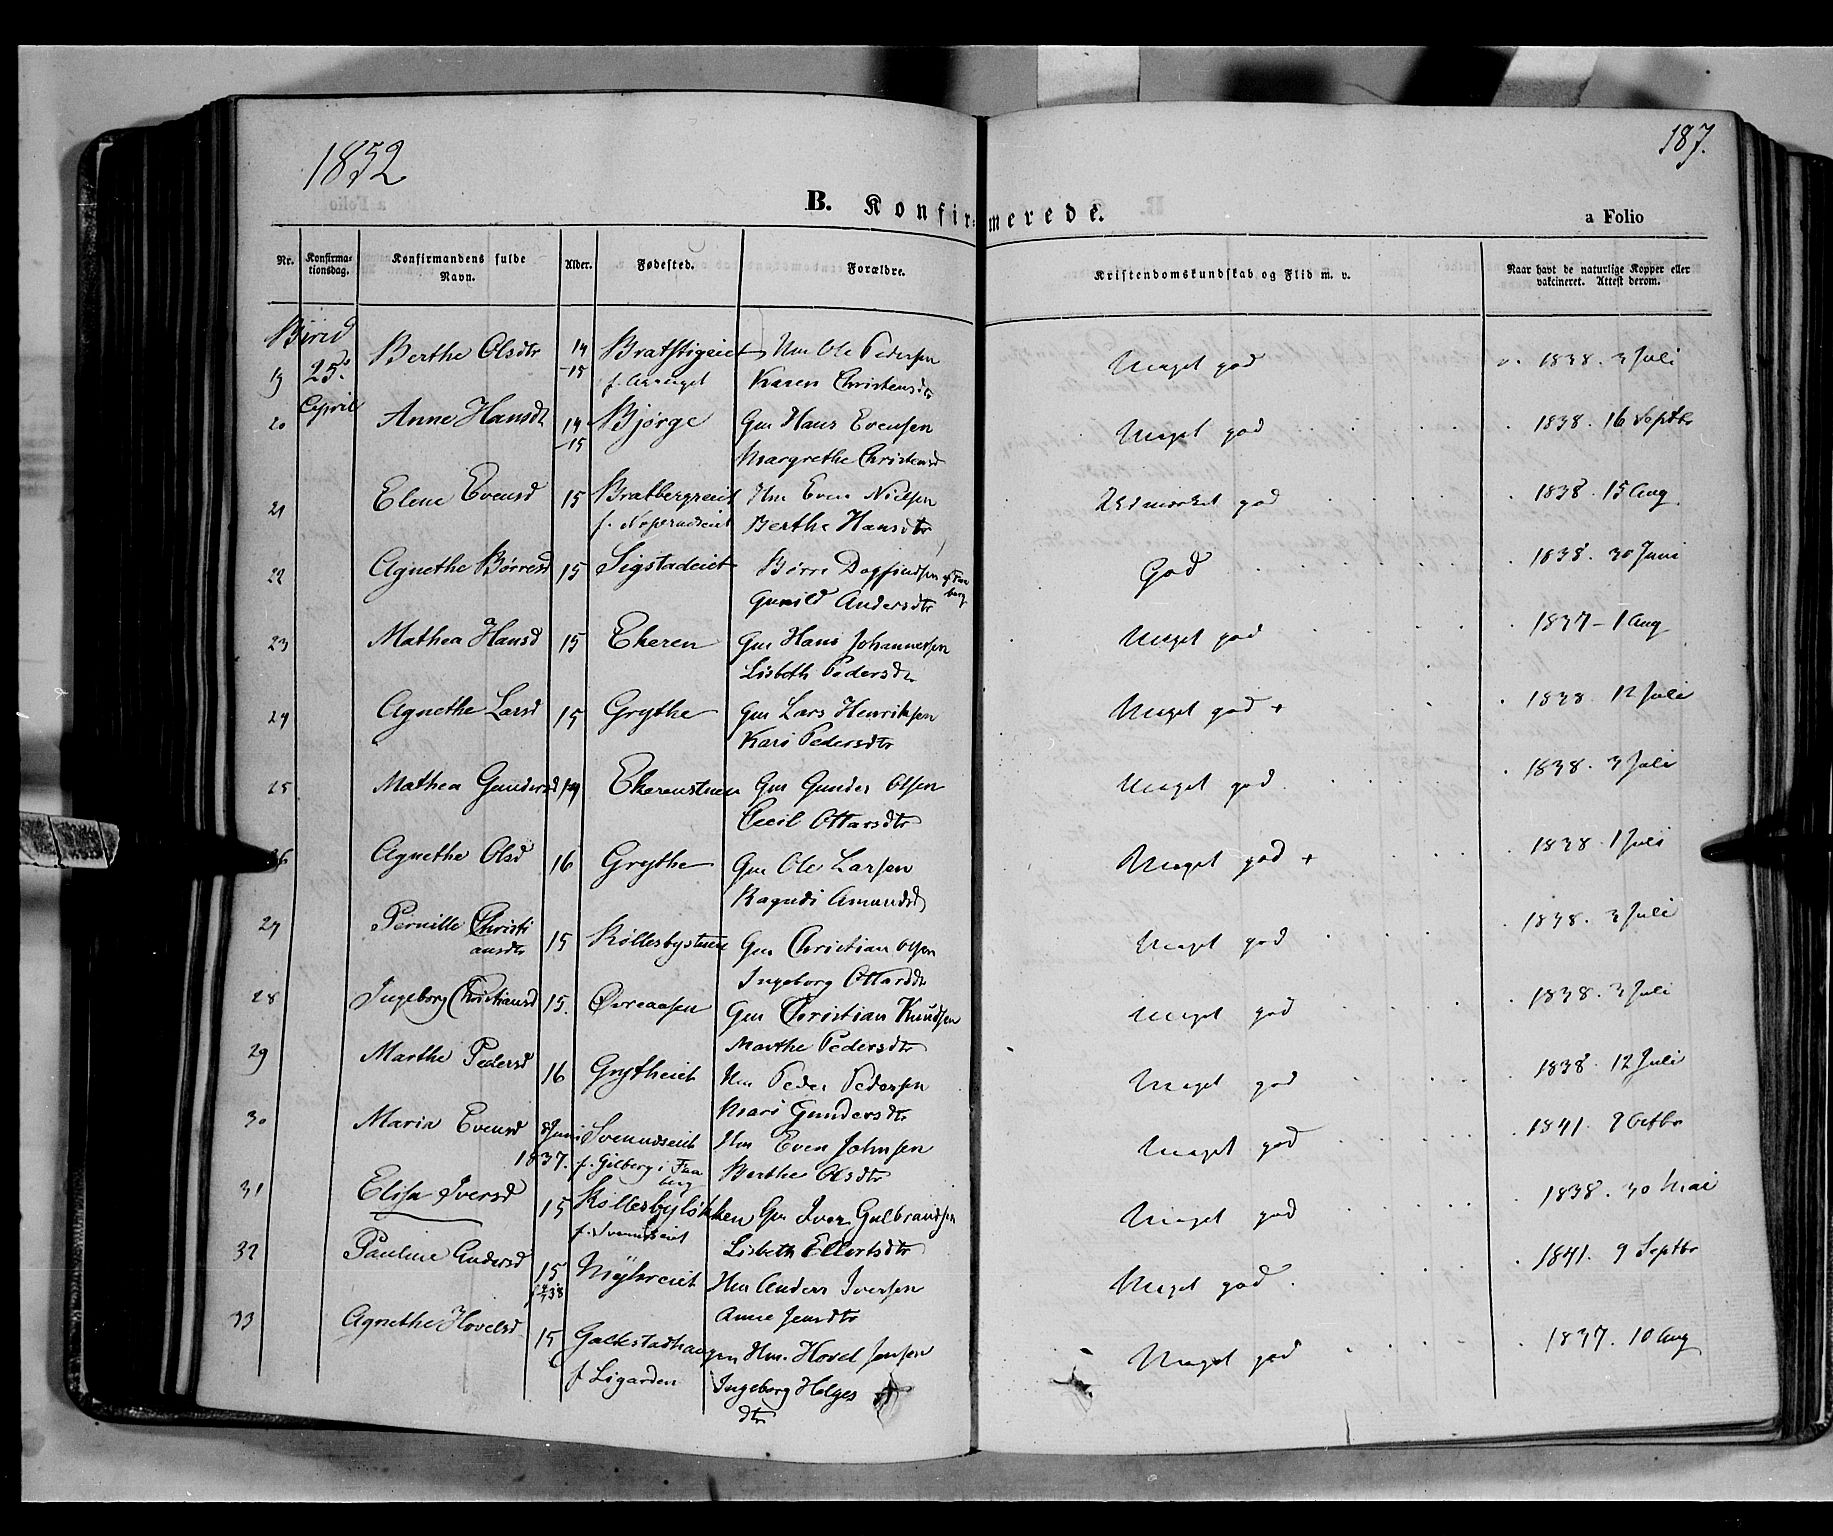 1852
187.
B. Konfirmerede.
a Folio
Nr. Konfirmationsdag. Konfirmandens fulde Navn. Alder. Fødested. Forældre. Kristendomskundskab og Flid m. v. Naar havt de naturlige Kopper eller vakcineret. Attest derom.
Birid
19 25. April Berthe Olsdtr 14-15 Bratstigeiet Hm Ole Pedersen Meget god 1838. 3 Juli
Karen Christensdtr
20 Anne Hansdt 14-15 Bjørge Gm Hans Evensen Meget god 1838. 16 Septbr
Margrethe Christensd
21 Elene Evensd 15 Bratbergseiet Hm Even Nielsen Udmærket god 1838. 15 Aug
Berthe Hansdtr
22 Agnethe Børresd 15 Sigstadeiet Børre Dagfindsen af Faaberg God 1838. 30 Juni
Gunild Andersdtr
23 Mathea Hansd 15 Ekeren Gm Hans Johannesen Meget god 1837 - 1 Aug
Lisbeth Pedersdr
24 Agnethe Larsd 15 Grythe Gm Lars Henriksen Meget god + 1838. 12 Juli
Kari Pedersdtr
25 Mathea Gundersd 14 Ekerenstuen Gm Gunder Olsen Meget god. 1838. 3 Juli
Cecil Ottarsdtr
26 Agnethe Olsd 16 Grythe Gm Ole Larsen Meget god + 1838. 1 Juli
Ragndi Amundsd
27 Pernille Christiansdtr 15 Kollesbystuen Gm Christian Olsen Meget god 1838. 3 Juli
Ingeborg Ottarsdt
28 Ingeborg Christiansd 15. Øvreaasen Gm Christian Knudsen Meget god 1838. 3 Juli
Marthe Pedersdtr
29 Marthe Pedersd 16 Grytheeiet Hm Peder Pedersen Meget god 1838. 12 Juli
Mari Gundersdtr
30 Maria Evensd 8 Juni 1837. Svenndseiet Hm Even Johnsen Meget god 1841. 9 Octbr
f. Gilberg i Faaberg Berthe Olsdtr
31 Elisa Iversd 15 Kollesbyløkken Gm Iver Gulbrandsen Meget god 1838. 30 Mai
f. Svenndseiet Lisbeth Ellertsdtr
32 Pauline Andersd 15 Myhreiet Hm Anders Iversen Meget god. 1841. 9 Septbr
Anne Jensdtr
33 Agnethe Hovelsd 15 Gaekstadhaugen Hm. Hovel Jensen Meget god 1837. 10 Aug
f Ligarden Ingeborg Helgesdtr